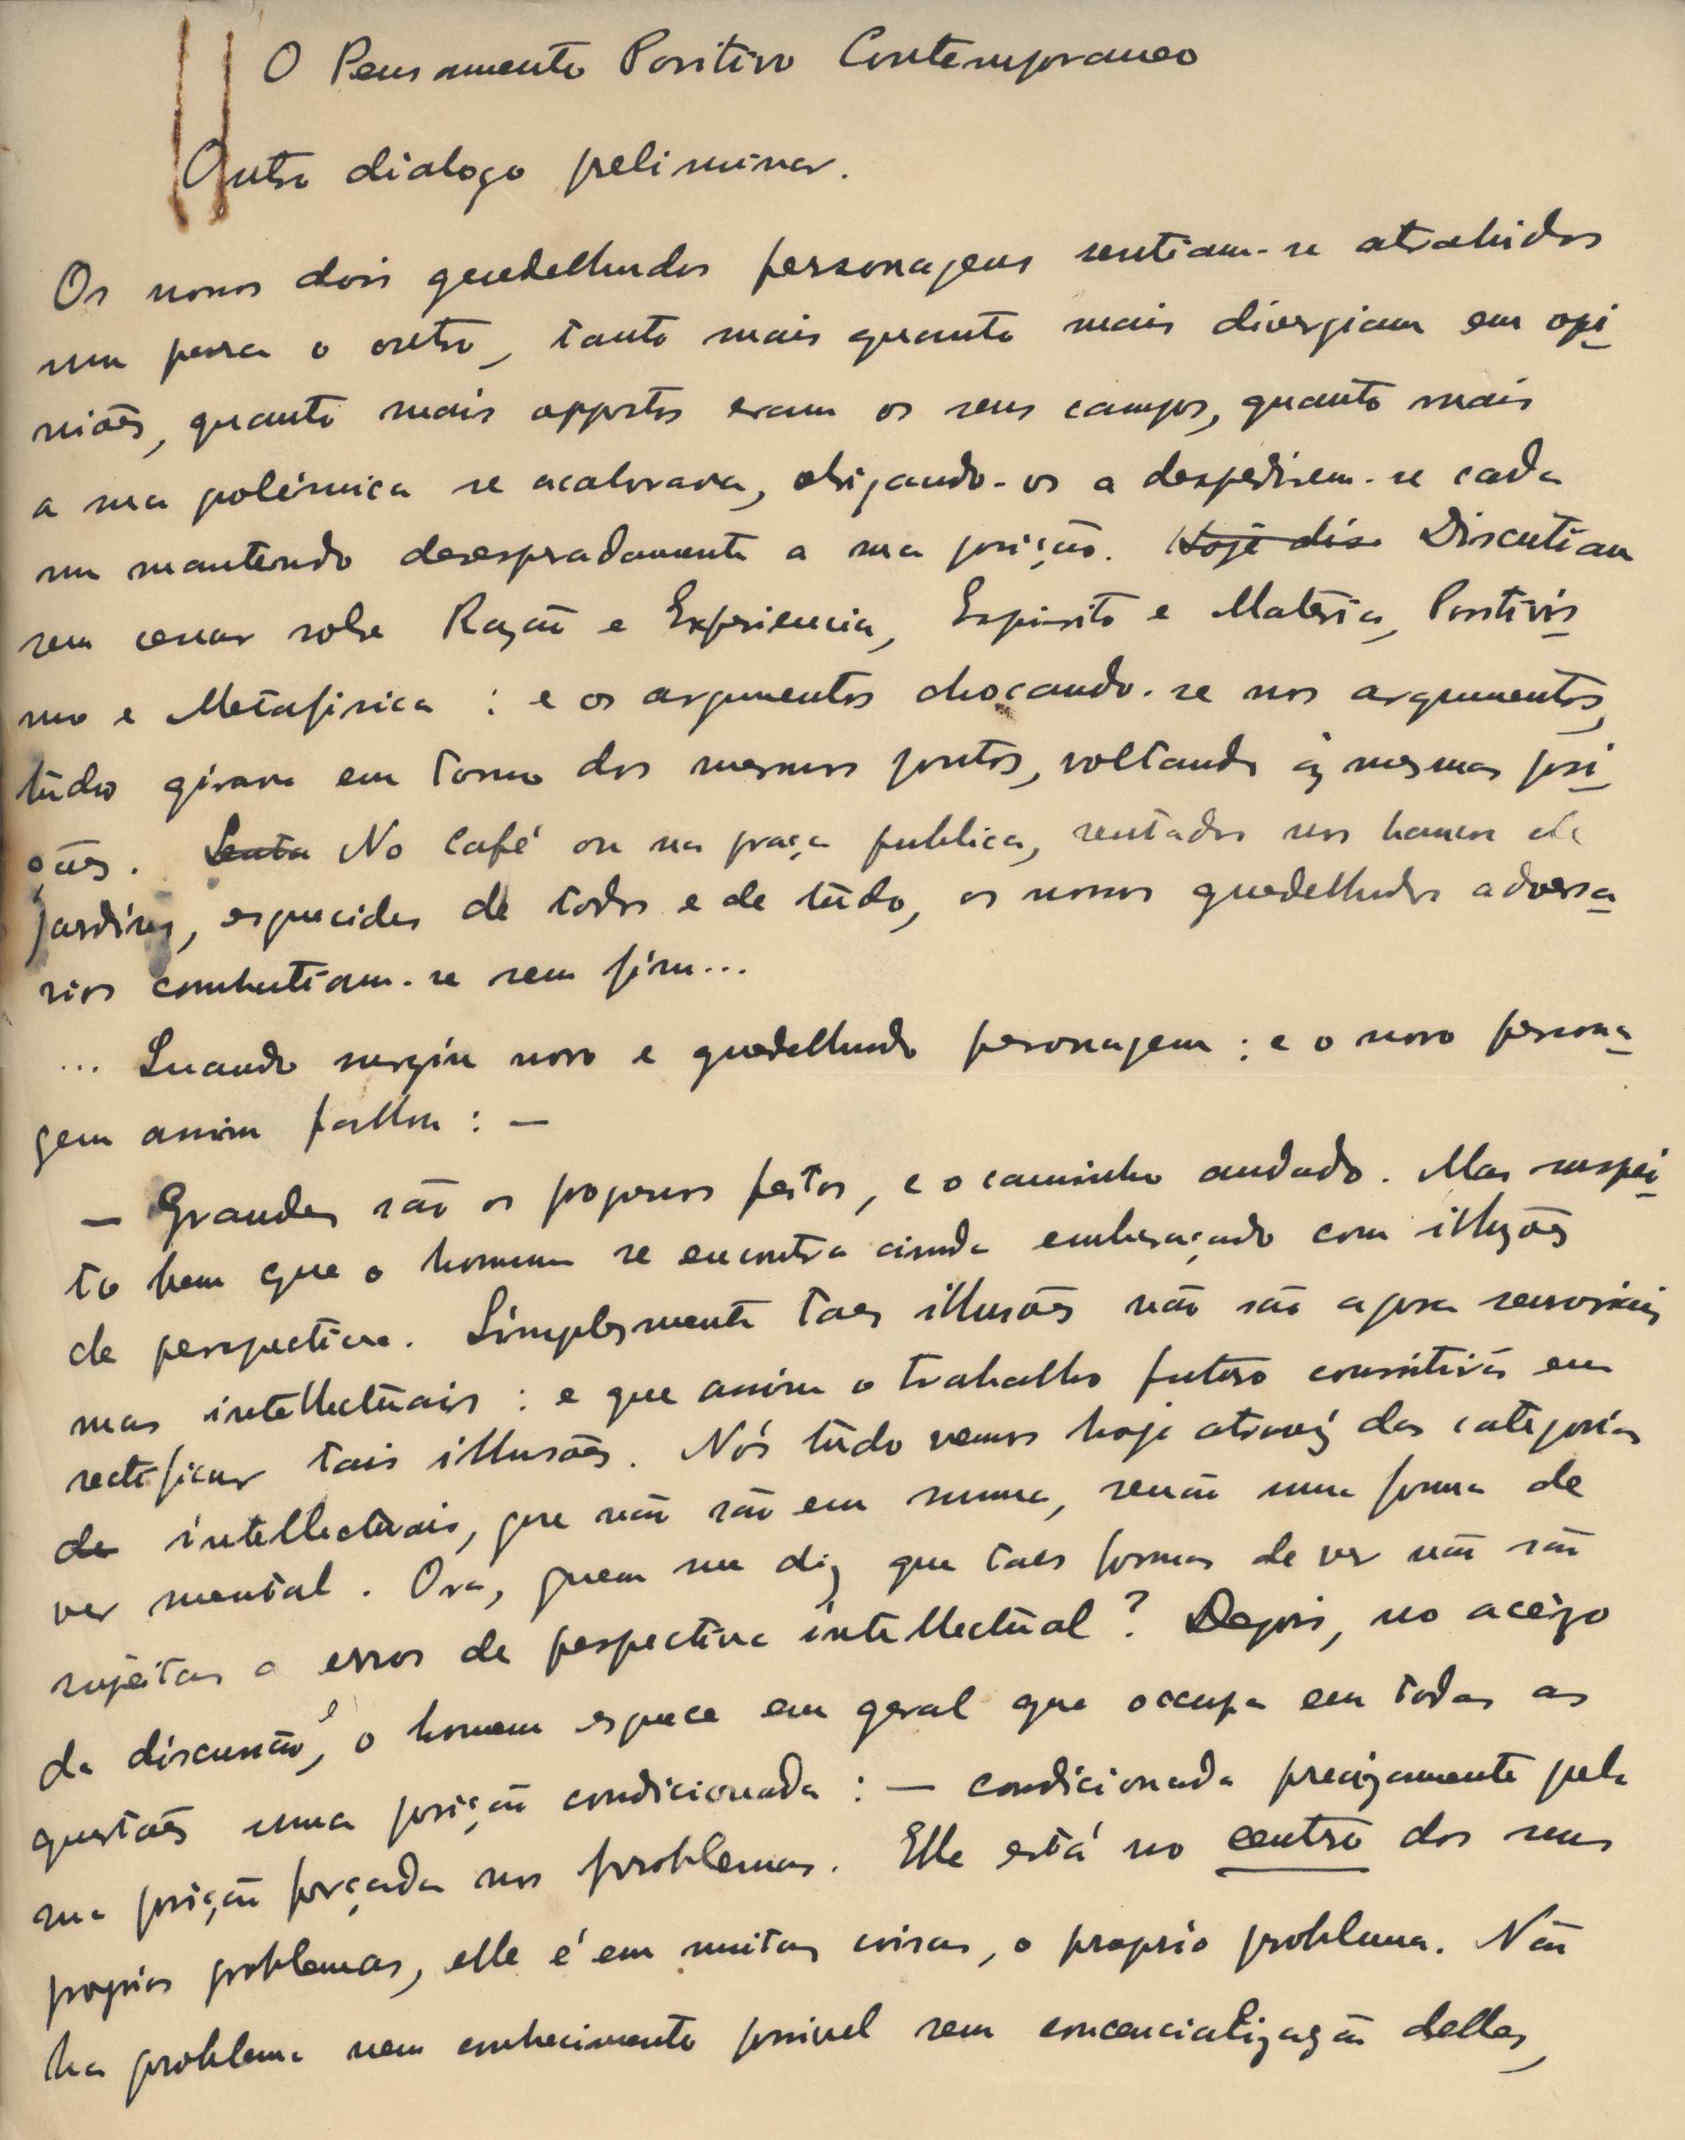 O Pensamento Positivo Contemporaneo
Outro dialogo preliminar.
Os nossos dois guedelhudos personagens sentiam-se atrahidos
um para o outro, tanto mais quanto mais divergiam em opi
niões, quanto mais oppostos eram os seus campos, quanto mais
a sua polémica se acalorava, obrigando-os a despedirem-se cada
um mantendo desesperadamente a sua posição. Hoje disc Discutiam
sem cessar sobre Razão e Experiencia, Espirito e Materia, Positivis
mo e Metafisica : e os argumentos chocando-se nos argumentos,
tudo girava em torno dos mesmos pontos, voltando ás mesmas posi
ções. Senta No café ou na praça publica, sentados nos bancos de
jardins, esquecidos de todos e de tudo, os nossos guedelhudos adversa
rios combatiam-se sem fim...
... Quando surgiu novo e guedelhudo personagem : e o novo persona
gem assim fallou : —
— Grandes são os progressos feitos, e o caminho andado. Mas suspei
to bem que o homem se encontra ainda embaraçado com illuzões
de perspectiva. Simplesmente taes illusões não são agora sensoriais
mas intellectuais : e que assim o trabalho futuro consistirá em
rectificar tais illusões. Nós tudo vemos hoje atravéz das categorias
de intellectuais, que não são em summa, senão uma forma de
ver mental. Ora, quem me diz que taes formas de ver não são
sujeitas a erros de perspectiva intellectual? Depois, no acezo
da discussão, o homem esquece em geral que occupa em todas as
questões uma posição condicionada : — condicionada precizamente pela
sua posição forçada nos problemas. Elle está no centro dos seus
proprios problemas, elle é em muitas coisas, o proprio problema. Não
ha problema nem conhecimento possivel sem concencialização delles,